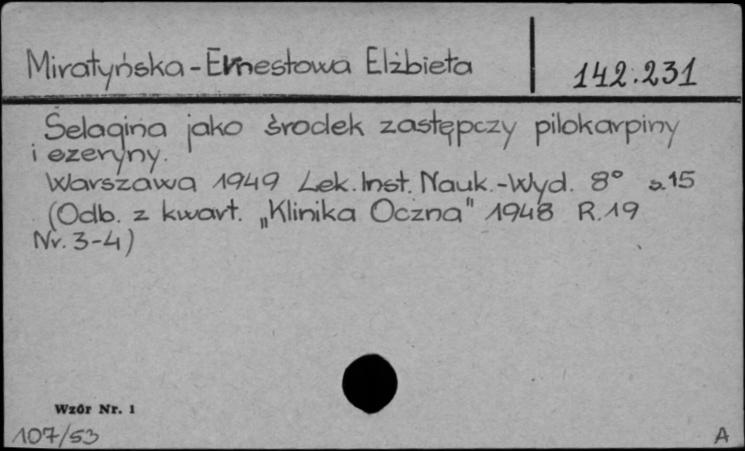 Miratyńska-Ernestowa Elżbieta
142.231
Selagina jako środek zastępczy pilokarpiny
i ezeryny.
Warszawa 1949 Lek. Inst. Nauk.-Wyd. 8° s.15
(Odb. z kwart. „Klinika Oczna" 1948 R.19
Nr. 3-4)
Wzór Nr. 1
107/53
A